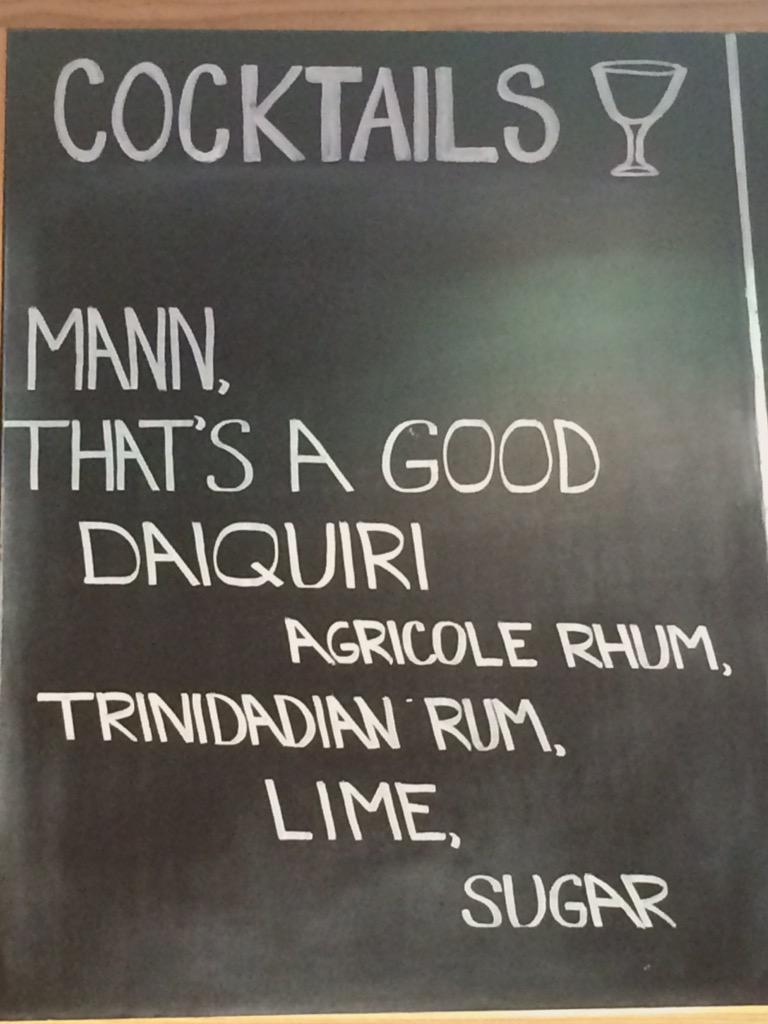 COCKTAILS
MANN,
THAT'S A GOOD
DAIQUIRI
AGRICOLE RHUM,
TRINIDADIAN RUM,
LIME,
SUGAR